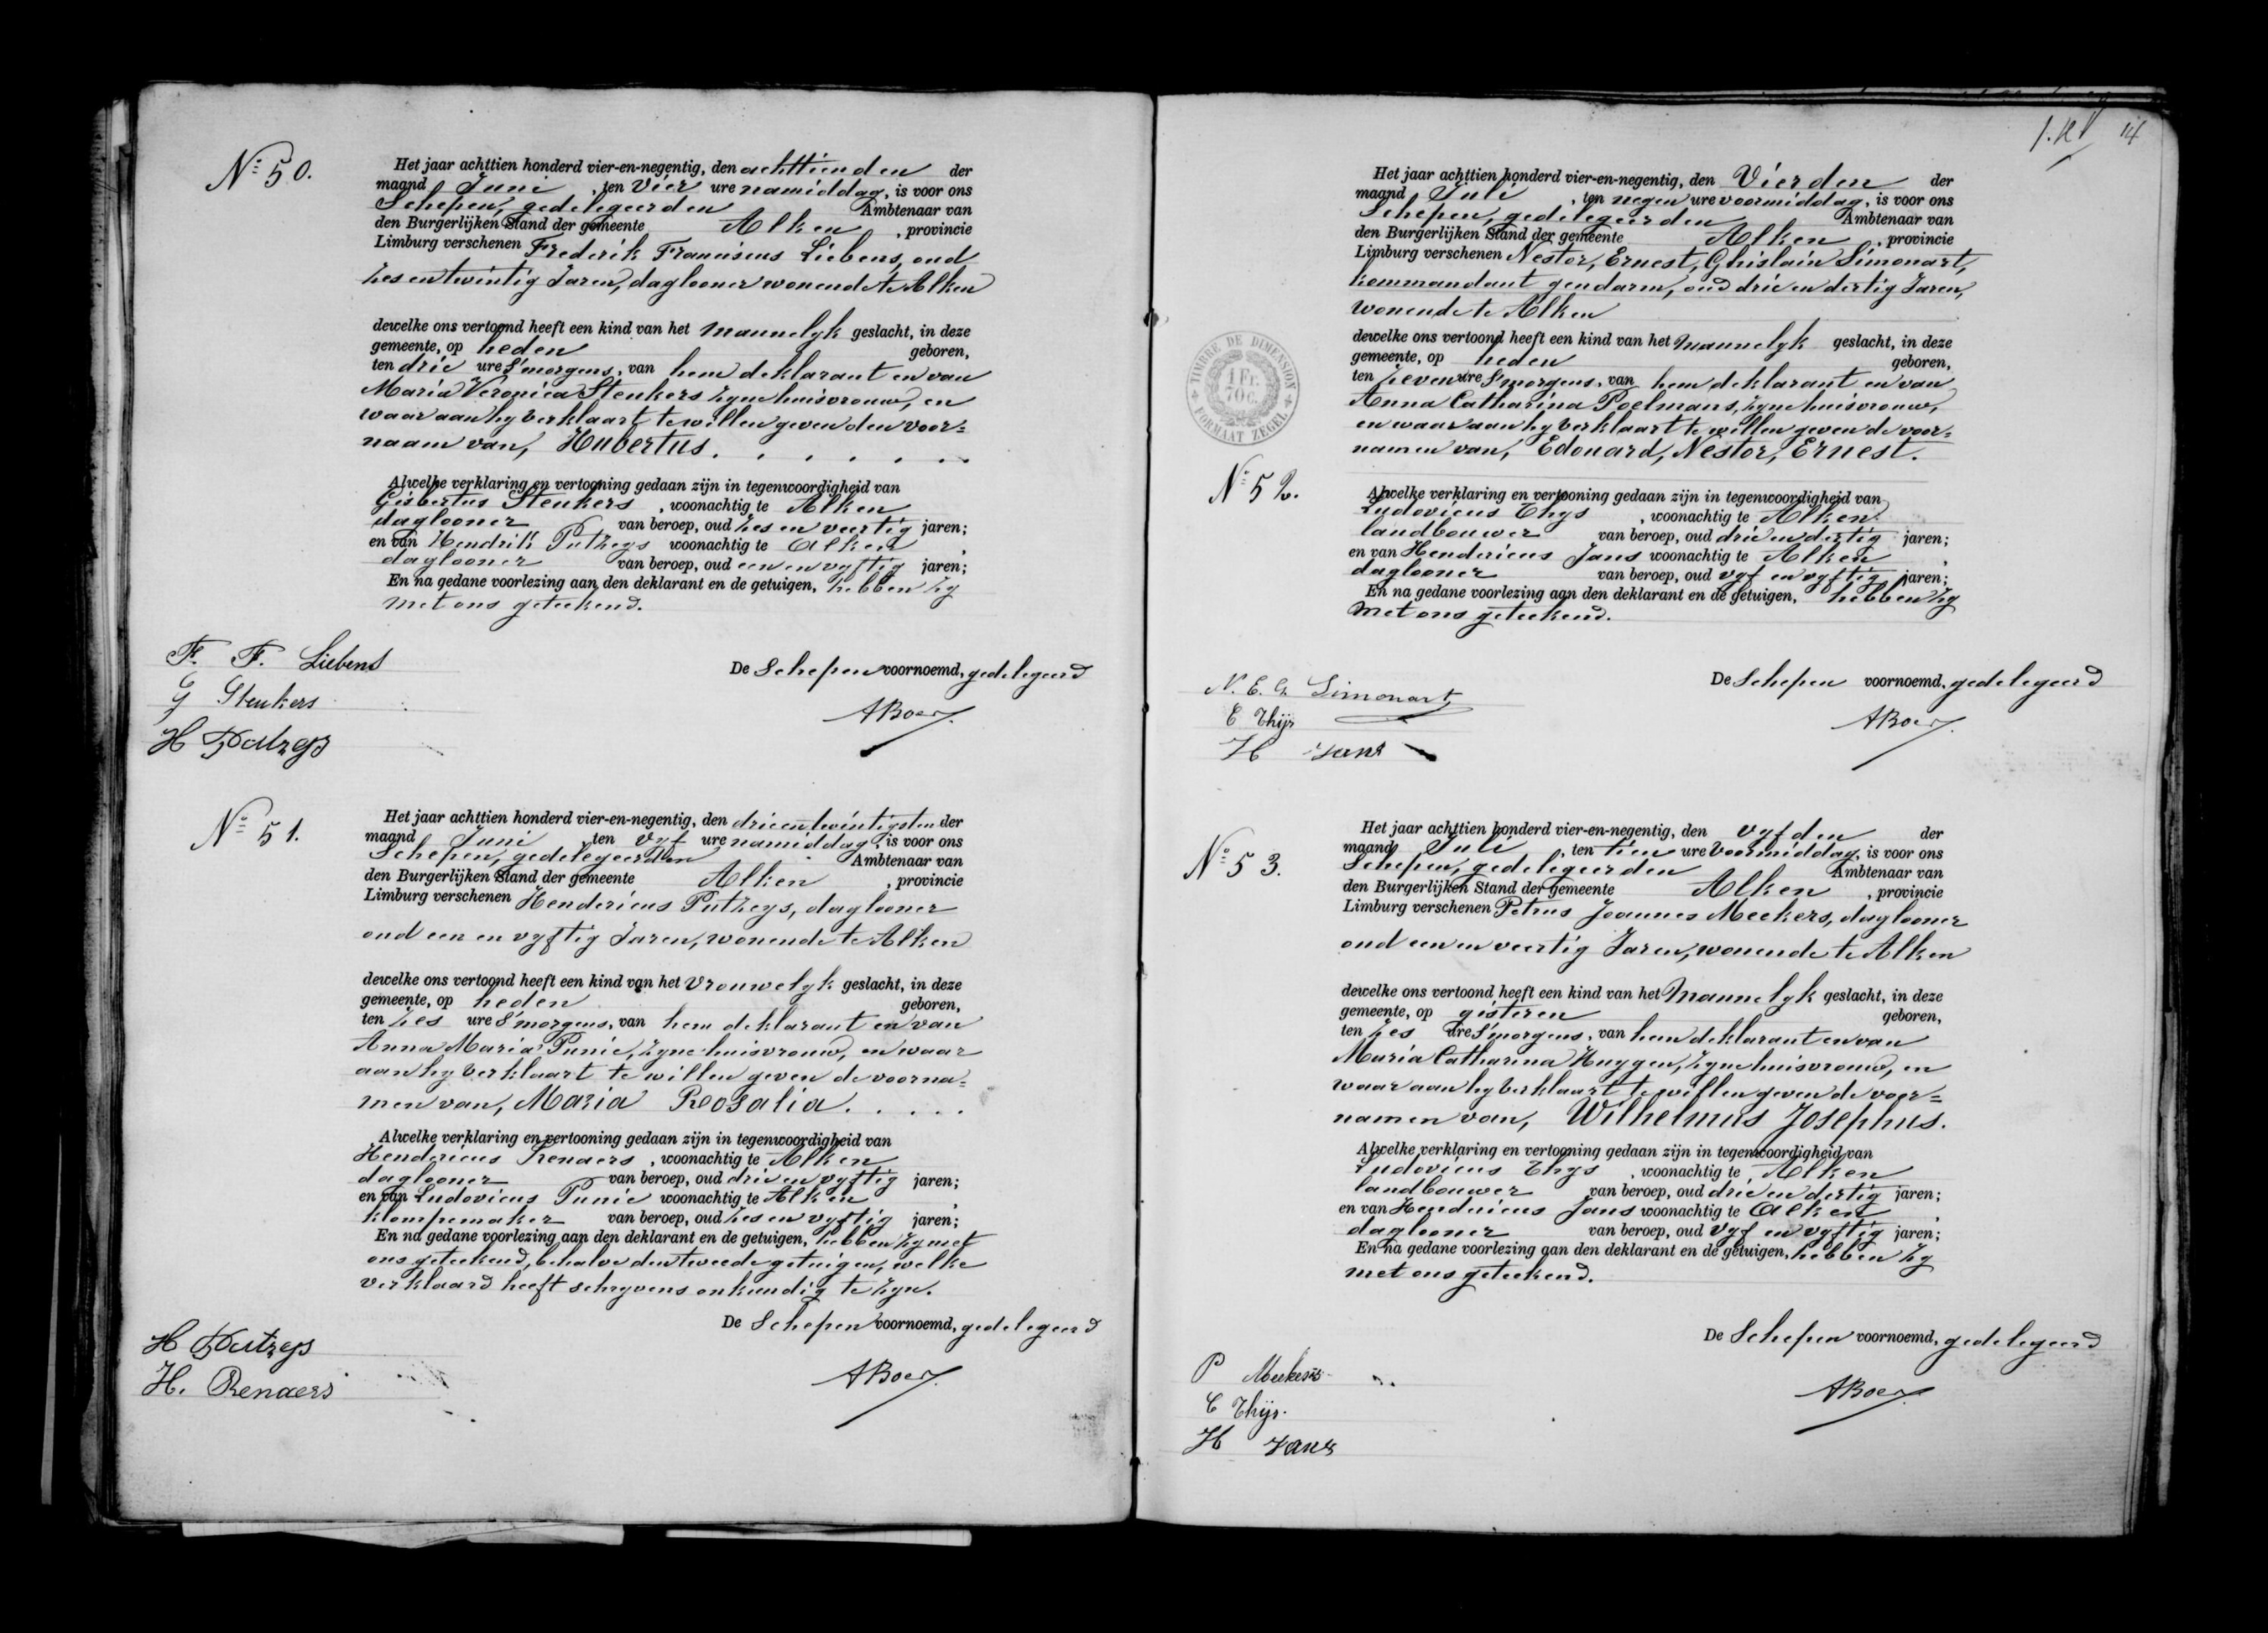 Nº 50.
Het jaar achttien honderd vier-en-negentig, den achttienden der
maand Juni , ten Vier ure namiddag, is voor ons
Schepen, gedelegeerden Ambtenaar van
den Burgerlijken Stand der gemeente Alken , provincie
Limburg verschenen Frederik Franciscus Liebens, oud
zes en twintig Jaren, daglooner wonende te Alken
dewelke ons vertoond heeft een kind van het mannelyk geslacht, in deze
gemeente, op heden geboren,
ten drie ure S'morgens, van hem deklarant en van
Maria Veronica Stenkers zyne huisvrouw, en
waaraan hy verklaart te willen geven den voor=
naam van, Hubertus. . . . . . .
Alwelke verklaring en vertooning gedaan zijn in tegenwoordigheid van
Gisbertus Stenkers , woonachtig te Alken
daglooner van beroep, oud zes en veertig jaren;
en van Hendrik Putzeys woonachtig te Alken ,
daglooner van beroep, oud een en vyftig jaren;
En na gedane voorlezing aan den deklarant en de getuigen, hebben zy
met ons geteekend.
F. F. Liebens
G Stenkers
H Putzeys
De Schepen voornoemd, gedelegeerd
ABoes
Nº 51.
Het jaar achttien honderd vier-en-negentig, den drieentwintigsten der
maand Juni ten Vyf ure namiddag, is voor ons
Schepen, gedelegeerden Ambtenaar van
den Burgerlijken Stand der gemeente Alken , provincie
Limburg verschenen Hendericus Putzeys, daglooner
oud een en vyftig Jaren, wonende te Alken
dewelke ons vertoond heeft een kind van het Vrouwelyk geslacht, in deze
gemeente, op heden geboren,
ten zes ure S'morgens, van hem deklarant en van
Anna Maria Punie, zyne huisvrouw, en waar
aan hy verklaart te willen geven de voorna=
men van, Maria Rosalia. . . . . .
Alwelke verklaring en vertooning gedaan zijn in tegenwoordigheid van
Hendericus Renaers , woonachtig te Alken
daglooner van beroep, oud drie en vyftig jaren;
en van Ludovicus Punie woonachtig te Alken ,
klompemaker van beroep, oud zes en vyftig jaren;
En na gedane voorlezing aan den deklarant en de getuigen, hebben zy met
ons geteekend, behalve den tweede getuigen, welke
verklaard heeft schryvens onkundig te zyn.
De Schepen voornoemd, gedelegeerd
H Putzeys
H. Renaers
ABoes
14
TIMBRE DE DIMENSION
1 Fr.
70 c.
FORMAAT ZEGEL
Nº 52.
Het jaar achttien honderd vier-en-negentig, den Vierden der
maand Juli , ten negen ure voormiddag, is voor ons
Schepen, gedelegeerden Ambtenaar van
den Burgerlijken Stand der gemeente Alken , provincie
Limburg verschenen Nestor, Ernest, Ghislain Simonart,
kommandant gendarm, oud drie en dertig Jaren,
wonende te Alken
dewelke ons vertoond heeft een kind van het mannelyk geslacht, in deze
gemeente, op heden geboren,
ten zeven ure S'morgens, van hem deklarant en van
Anna Catharina Poelmans, zyne huisvrouw,
en waaraan hy verklaart te willen geven de voor=
namen van, Edouard, Nestor, Ernest.
Alwelke verklaring en vertooning gedaan zijn in tegenwoordigheid van
Ludovicus Thys , woonachtig te Alken
landbouwer van beroep, oud drie en dertig jaren;
en van Hendericus Jans woonachtig te Alken ,
daglooner van beroep, oud vyf en vyftig jaren;
En na gedane voorlezing aan den deklarant en de getuigen, hebben zy
met ons geteekend.
De Schepen voornoemd, gedelegeerd
N. E. G Simonart
L Thijs
H Jans
ABoes
Nº 53.
Het jaar achttien honderd vier-en-negentig, den vyfden der
maand Juli , ten tien ure voormiddag, is voor ons
Schepen, gedelegeerden Ambtenaar van
den Burgerlijken Stand der gemeente Alken , provincie
Limburg verschenen Petrus Joannes Meekers, daglooner
oud een en veertig Jaren, wonende te Alken
dewelke ons vertoond heeft een kind van het mannelyk geslacht, in deze
gemeente, op gisteren geboren,
ten zes ure S'morgens, van hem deklarant en van
Maria Catharina Huygen, zyne huisvrouw, en
waaraan hy verklaart te willen geven de voor=
namen van, Wilhelmus Josephus.
Alwelke verklaring en vertooning gedaan zijn in tegenwoordigheid van
Ludovicus Thys , woonachtig te Alken
landbouwer van beroep, oud drie en dertig jaren;
en van Hendericus Jans woonachtig te Alken ,
daglooner van beroep, oud vyf en vyftig jaren;
En na gedane voorlezing aan den deklarant en de getuigen, hebben zy
met ons geteekend.
De Schepen voornoemd, gedelegeerd
P Meekers
L Thijs.
H Jans
ABoes